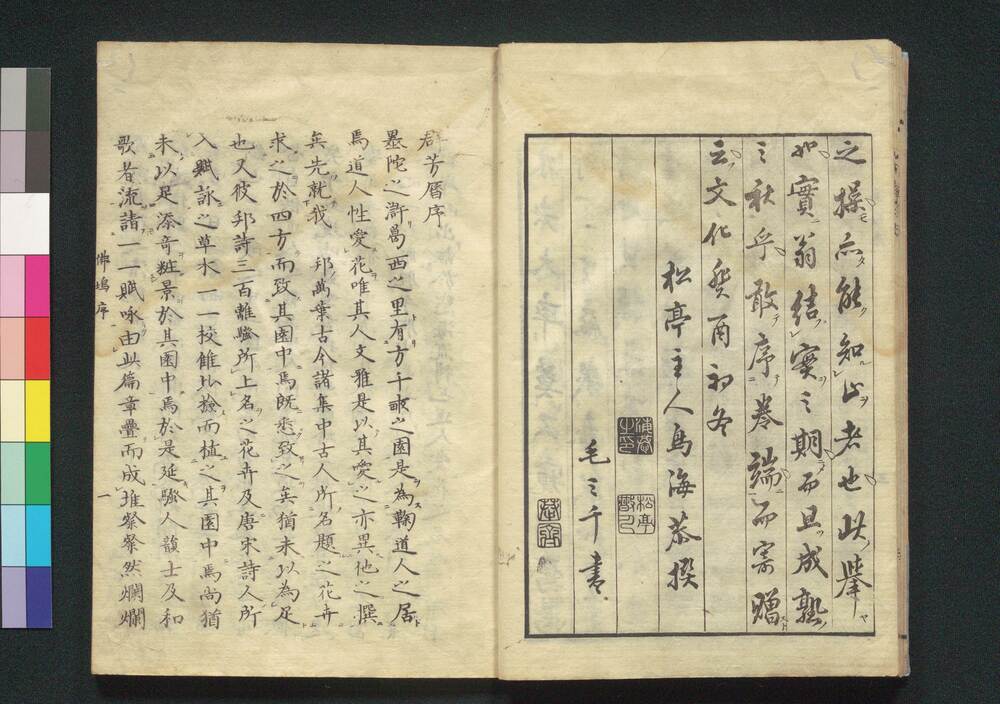 之操亦能知止者也此擧
如實翁結實之期而且成熟
之秋乎敢序卷端而寄贈
云文化癸酉初冬
松亭主人鳥海恭撰
松亭
毛三千書
群芳暦序
墨陀之滸葛西之里有方千畝之園是為鞠道人之居
焉道人性愛花唯其人文雅是以其愛之亦異他之撰
矣先就我邦萬葉古今諸集中古人所名題之花卉
求之於四方而致其園中焉既悉致之矣猶未以為足
也又彼邦詩三百離騷所上名之花卉及唐宋詩人所
入賦詠之草木一一校雠比撿而植之其園中焉尚猶
未以足添奇粧景於其園中焉於是延騷人韻士及和
歌者流請一一賦咏由此篇章疊而成堆粲粲然爛爛
佛塢序
一